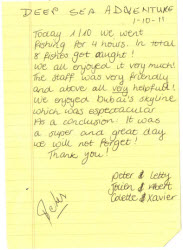 DEEP SEA ADVENTURE
1-10-11
Today 1/10 we went
fishing for 4 hours. in total
8 fishes got caught!
We all enjoyed it very much!
The staff was very friendly
and above all very helpful!
We enjoyed Dubai's skyline
which was espectacular
As a conclusion: It was
a super and great day
we will not forget!
Thank you!
peter & Letty
&
Colette & Xavier